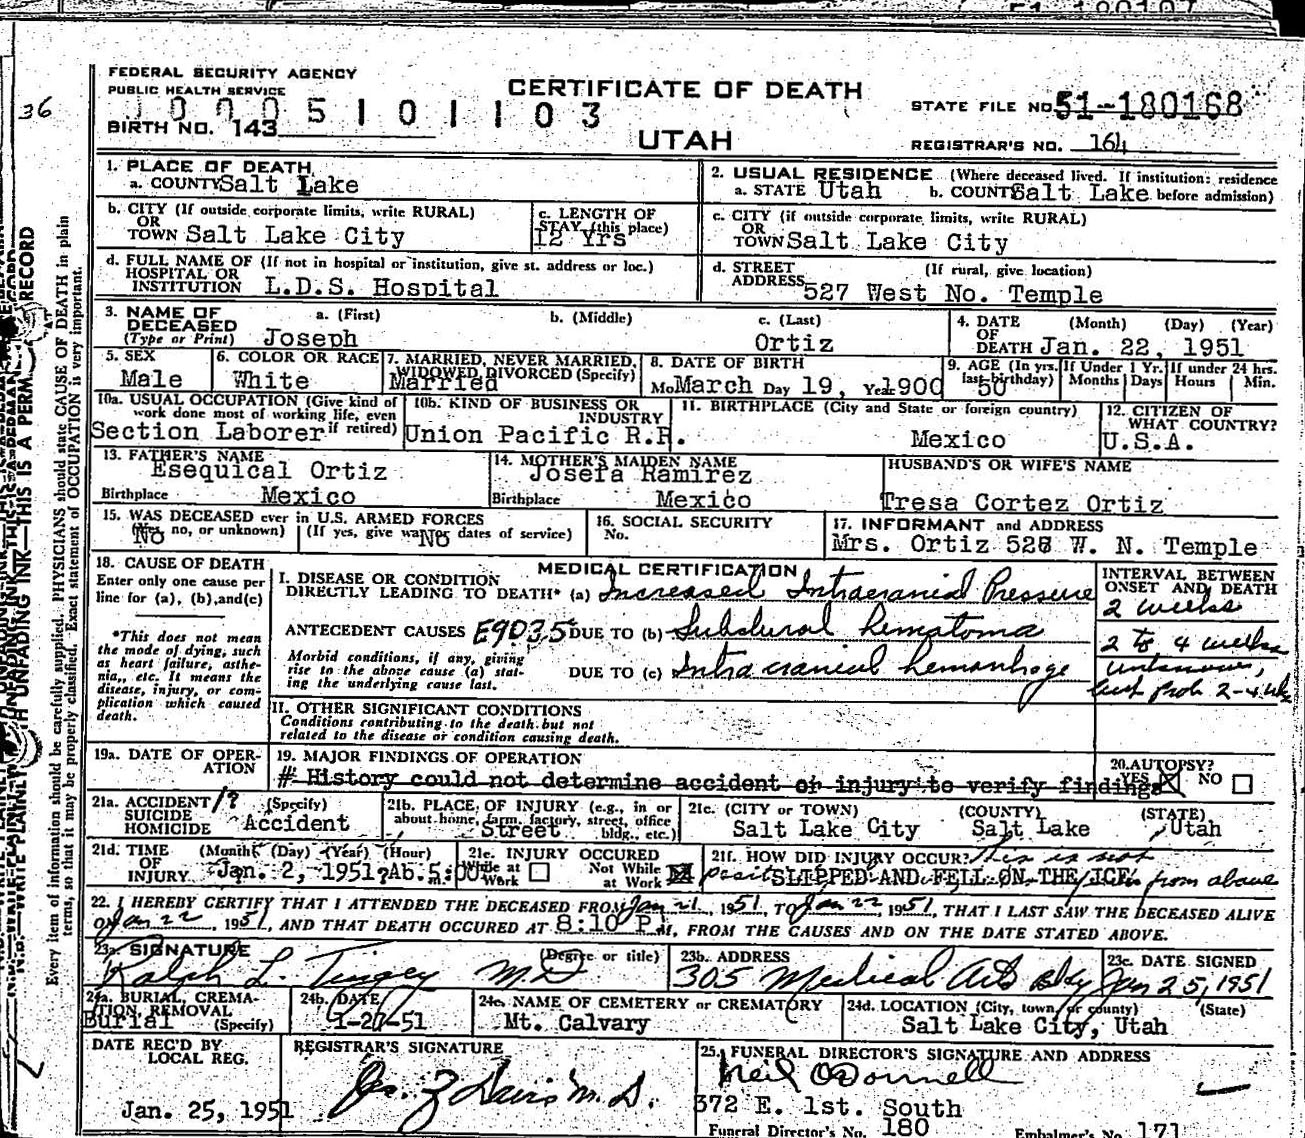 36
FEDERAL SECURITY AGENCY
PUBLIC HEALTH SERVICE
CERTIFICATE OF DEATH
1 0 0 0 5 1 0 1 1 0 3
BIRTH NO. 143
UTAH
STATE FILE NO. 51-180168
REGISTRAR'S NO. 164
1. PLACE OF DEATH
a. COUNTY Salt Lake
2. USUAL RESIDENCE (Where deceased lived. If institution: residence
a. STATE Utah b. COUNTY Salt Lake before admission)
b. CITY (If outside corporate limits, write RURAL)
OR
TOWN Salt Lake City
c. LENGTH OF
STAY (this place)
12 Yrs
c. CITY (if outside corporate limits, write RURAL)
OR
TOWN Salt Lake City
d. FULL NAME OF (If not in hospital or institution, give st. address or loc.)
HOSPITAL OR
INSTITUTION L.D.S. Hospital
d. STREET (If rural, give location)
ADDRESS
527 West No. Temple
3. NAME OF
DECEASED
(Type or Print)
a. (First) b. (Middle) c. (Last)
Joseph Ortiz
4. DATE (Month) (Day) (Year)
OF
DEATH Jan. 22, 1951
5. SEX
Male
6. COLOR OR RACE
White
7. MARRIED, NEVER MARRIED,
WIDOWED, DIVORCED (Specify)
Married
8. DATE OF BIRTH
Mo March Day 19, Year 1900
9. AGE (In yrs. last birthday)
50
If Under 1 Yr.
Months Days
If under 24 hrs.
Hours Min.
10a. USUAL OCCUPATION (Give kind of
work done most of working life, even
if retired)
Section Laborer
10b. KIND OF BUSINESS OR
INDUSTRY
Union Pacific R.R.
11. BIRTHPLACE (City and State or foreign country)
Mexico
12. CITIZEN OF
WHAT COUNTRY?
U.S.A.
13. FATHER'S NAME
Esequical Ortiz
Birthplace Mexico
14. MOTHER'S MAIDEN NAME
Josefa Ramirez
Birthplace Mexico
HUSBAND'S OR WIFE'S NAME
Tresa Cortez Ortiz
15. WAS DECEASED ever in U.S. ARMED FORCES
(Yes, no, or unknown) (If yes, give war or dates of service)
No No
16. SOCIAL SECURITY
No.
17. INFORMANT and ADDRESS
Mrs. Ortiz 528 W. N. Temple
18. CAUSE OF DEATH
Enter only one cause per
line for (a), (b), and (c)
*This does not mean
the mode of dying, such
as heart failure, asthe-
nia, etc. It means the
disease, injury, or com-
plication which caused
death.
MEDICAL CERTIFICATION
I. DISEASE OR CONDITION
DIRECTLY LEADING TO DEATH* (a) Increased Intracranial Pressure
ANTECEDENT CAUSES E9035 DUE TO (b) Subdural hematoma
Morbid conditions, if any, giving
rise to the above cause (a) stat-
ing the underlying cause last.
DUE TO (c) Intracranial hemorrhage
INTERVAL BETWEEN
ONSET AND DEATH
2 weeks
2 to 4 weeks
unknown,
but prob. 2-4 wk
II. OTHER SIGNIFICANT CONDITIONS
Conditions contributing to the death but not
related to the disease or condition causing death.
19a. DATE OF OPER-
ATION
19. MAJOR FINDINGS OF OPERATION
# History could not determine accident or injury to verify findings
20. AUTOPSY?
YES NO
21a. ACCIDENT /? (Specify)
SUICIDE
HOMICIDE
Accident
21b. PLACE OF INJURY (e.g., in or
about home, farm, factory, street, office
bldg., etc.)
Street
21c. (CITY or TOWN) (COUNTY) (STATE)
Salt Lake City Salt Lake Utah
21d. TIME (Month) (Day) (Year) (Hour)
OF
INJURY Jan. 2, 1951? Ab. 5:00
m.
21e. INJURY OCCURED
While at
Work
Not While
at Work
21f. HOW DID INJURY OCCUR? This is not
SLIPPED AND FELL ON THE ICE from above
22. I HEREBY CERTIFY THAT I ATTENDED THE DECEASED FROM Jan 21, 1951, TO Jan 22, 1951, THAT I LAST SAW THE DECEASED ALIVE
ON Jan 22, 1951, AND THAT DEATH OCCURED AT 8:10 P.M., FROM THE CAUSES AND ON THE DATE STATED ABOVE.
23a. SIGNATURE (Degree or title)
Ralph L. Tingey M.D
23b. ADDRESS
305 Medical Arts Bldg
23c. DATE SIGNED
Jan 25, 1951
24a. BURIAL, CREMA-
TION, REMOVAL
(Specify)
Burial
24b. DATE
1-27-51
24c. NAME OF CEMETERY or CREMATORY
Mt. Calvary
24d. LOCATION (City, town, or county) (State)
Salt Lake City, Utah
DATE REC'D BY
LOCAL REG.
Jan. 25, 1951
REGISTRAR'S SIGNATURE
25. FUNERAL DIRECTOR'S SIGNATURE AND ADDRESS
Neil O'Donnell
372 E. 1st. South
Funeral Director's No. 180 Embalmer's No. 171
Every item of information should be carefully supplied. PHYSICIANS should state CAUSE OF DEATH in plain
terms, so that it may be properly classified. Exact statement of OCCUPATION is very important.